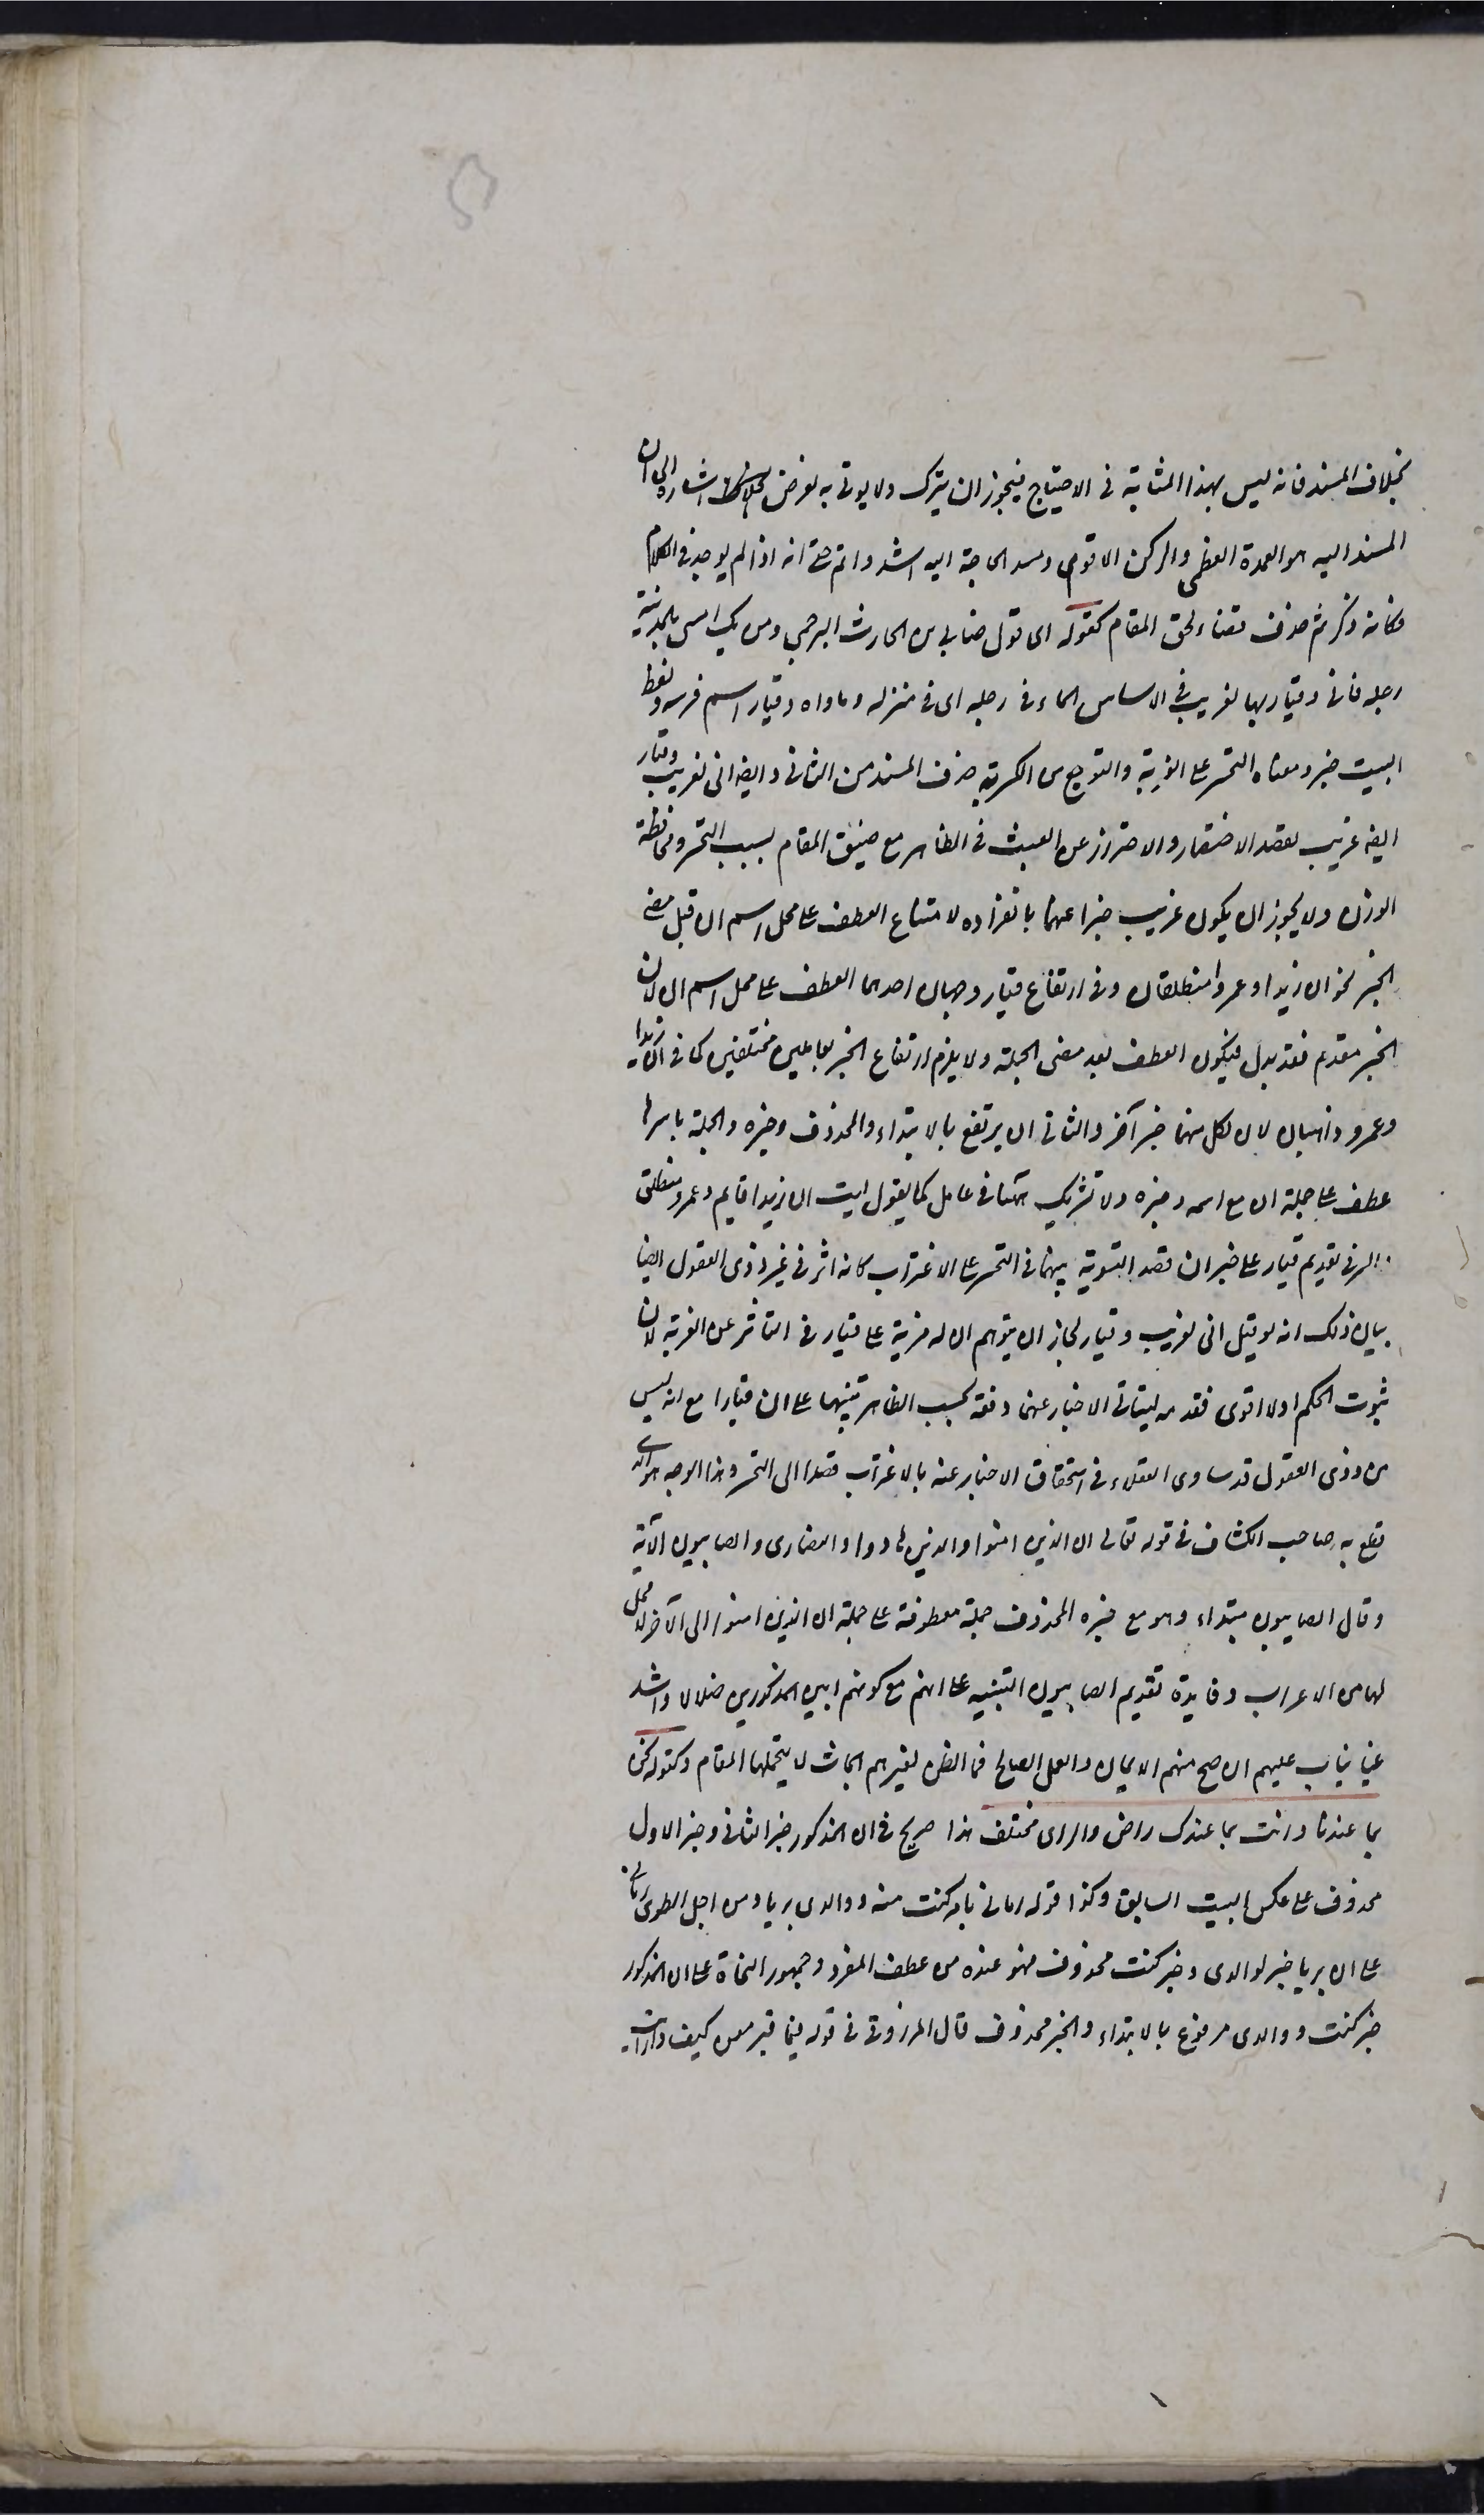 بخلاف المسند فانه ليس بهذا المثابة فى الاحتياج فيجوز ان يترك ولا يوتى به لغرض اشارة الى ان
المسند اليه هو العمدة العظمى والركن الاقوم ومسد الحاجة اليه اشد واتم حتى انه اذا لم يوجد فى الكلام
فكانه ذكر ثم حذف قضاء لحق المقام كقوله اى قول ضابى بن الحارث البرجمى ومن يك امسى بالمدينة
رحله فانى وقيار بها لغريب فى الاساس الماء فى رحله اى فى منزله وماواه وقيار اسم فرسه ولفظ
البيت خبر ومعناه التحسر على الغربة والتوجع من الكربة حذف المسند من الثانى والیضه انى لغريب وقيار
ايضه غريب لقصد الاختصار والاحتراز عن العبث فى الظاهر مع ضيق المقام بسبب التحسر ومحافظة
الوزن ولا يجوز ان يكون غريب خبرا عنهما بانفراده لامتناع العطف على محل اسم ان قبل مضى
الخبر نحو ان زيدا وعمرو منطلقان وفى ارتفاع قيار وجهان احدهما العطف على محل اسم ان لان
الخبر مقدم تقديرا فيكون العطف بعد مضى الجملة ولا يلزم ارتفاع الخبر بعاملين مختلفين كما فى ان زيدا
وعمرو ذاهبان لان لكل منهما خبر آخر والثانى ان يرتفع بالابتداء والمحذوف وخبره والجملة باسرها
عطف على جملة ان مع اسمه وخبره ولا تشريك هنا فى عامل كما يقول ليت ان زيدا قايم وعمرو منطلق
السر فى تقديم قيار على خبر ان قصد التسوية بينهما فى التحسر على الاغتراب كانه اثر فى غير ذوى العقول ايضا
بيان ذلك انه لو قيل انى لغريب وقيار لجاز ان يتوهم ان له مزية على قيار فى التاثر عن الغربة لان
ثبوت الحكم اولا اقوى فقدمه ليتاتى الاخبار عنهما دفعة بحسب الظاهر تنبيها على ان قيارا مع انه ليس
من ذوى العقول قد ساوى العقلاء فى استحقاق الاخبار عنه بالاغتراب قصدا الى التحسر وهذا الوجه هو الذى
قطع به صاحب الكشاف فى قوله تعالى ان الذين امنوا والذين هادوا والنصارى والصابيون الآية
وقال الصابيون مبتداء وهو مع خبره المحذوف جملة معطوفة على جملة ان الذين امنوا الى الآخر لا محل
لها من الاعراب وفايدة تقديم الصابيون التنبيه على انهم مع كونهم ابين المذكورين ضلالا واشد
غيا يتاب عليهم ان صح منهم الايمان والعمل الصالح فما الظن لغيرهم ابحاث لا يتحملها المقام وكقوله نحن
بما عندنا وانت بما عندك راض والراى مختلف هذا صريح فى ان المذكور خبر الثانى وخبر الاول
محذوف على عكس البيت السابق وكذا قوله رمانى بامر كنت منه ووالدى بريا ومن اجل الطوى رمانى
على ان بريا خبر لوالدى وخبر كنت محذوف فهو عنده من عطف المفرد وجمهور النحاة على ان المذكور
خبر كنت ووالدى مرفوع بالابتداء والخبر محذوف قال المرزوقى فى قوله فيا قبر معن كيف واريت